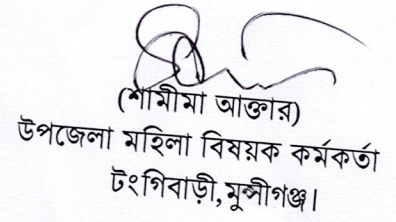 (শামীমা আক্তার)
উপজেলা মহিলা বিষয়ক কর্মকর্তা
টংগিবাড়ী,মুন্সীগঞ্জ।